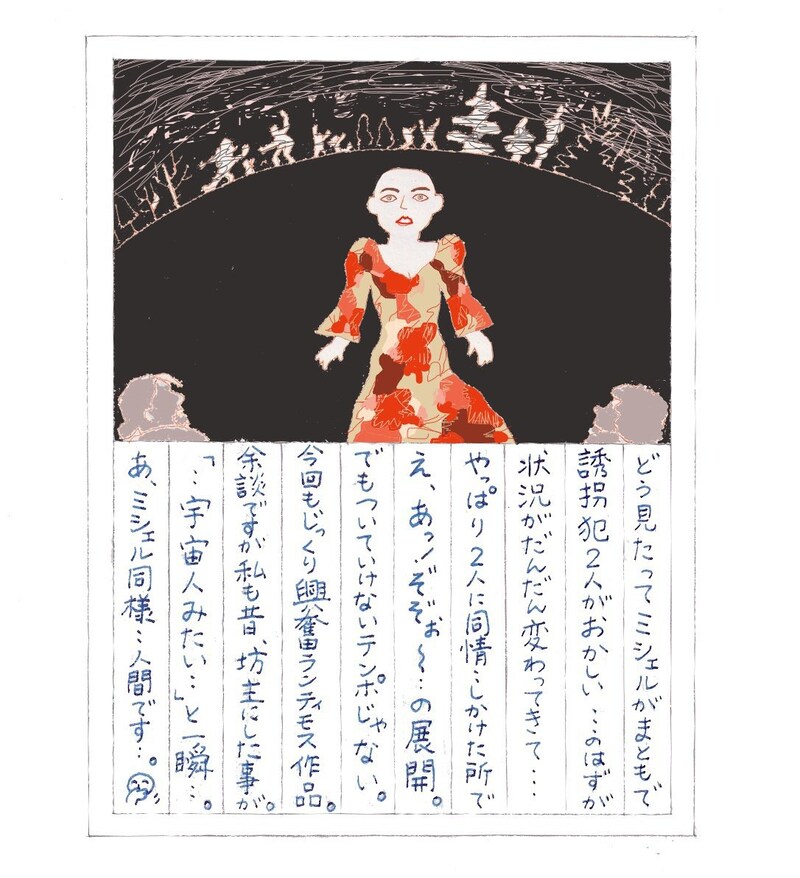 どう見たってミシェルがまともで
誘拐犯2人がおかしい…のはずが
状況がだんだん変わってきて…
やっぱり2人に同情…しかけた所で
え、あっ!ぞぞぉ〜…の展開。
でもついていけないテンポじゃない。
今回もじっくり興奮ランティモス作品。
余談ですが私も昔、坊主にした事が。
「…宇宙人みたい…」と一瞬…。
あ、ミシェル同様…人間です…。